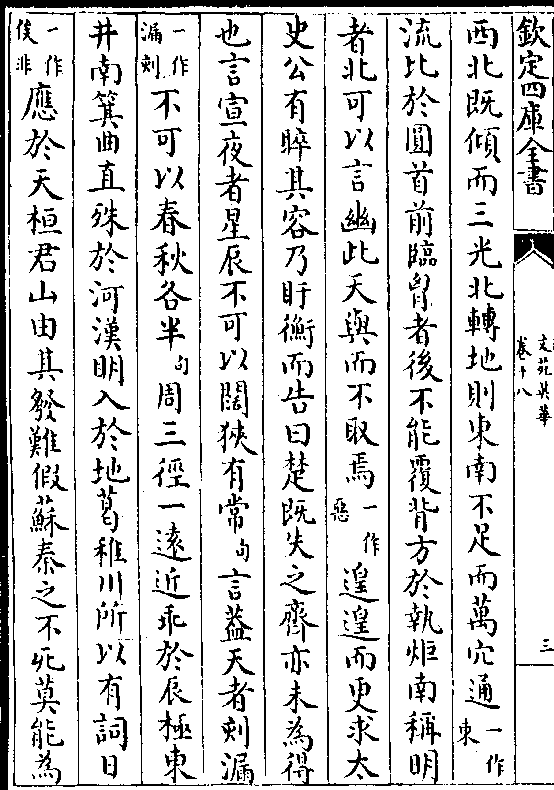 欽定四庫全書
文苑英華
卷十八
三
西北既傾而三光北轉地則東南不足而萬穴通一作東
流比於圓首前臨胷者後不能覆背方於執炬南稱明
者北可以言幽此天與而不取焉一作惡遑遑而更求太
史公有睟其容乃盱衡而告曰楚既失之齊亦未為得
也言宣夜者星辰不可以闊狹有常句言蓋天者刻漏
一作漏刻不可以春秋各半句周三徑一遠近乖於辰極東
井南箕曲直殊於河漢明入於地葛稚川所以有詞日
一作俟非應於天桓君山由其發難假蘇秦之不死莫能為